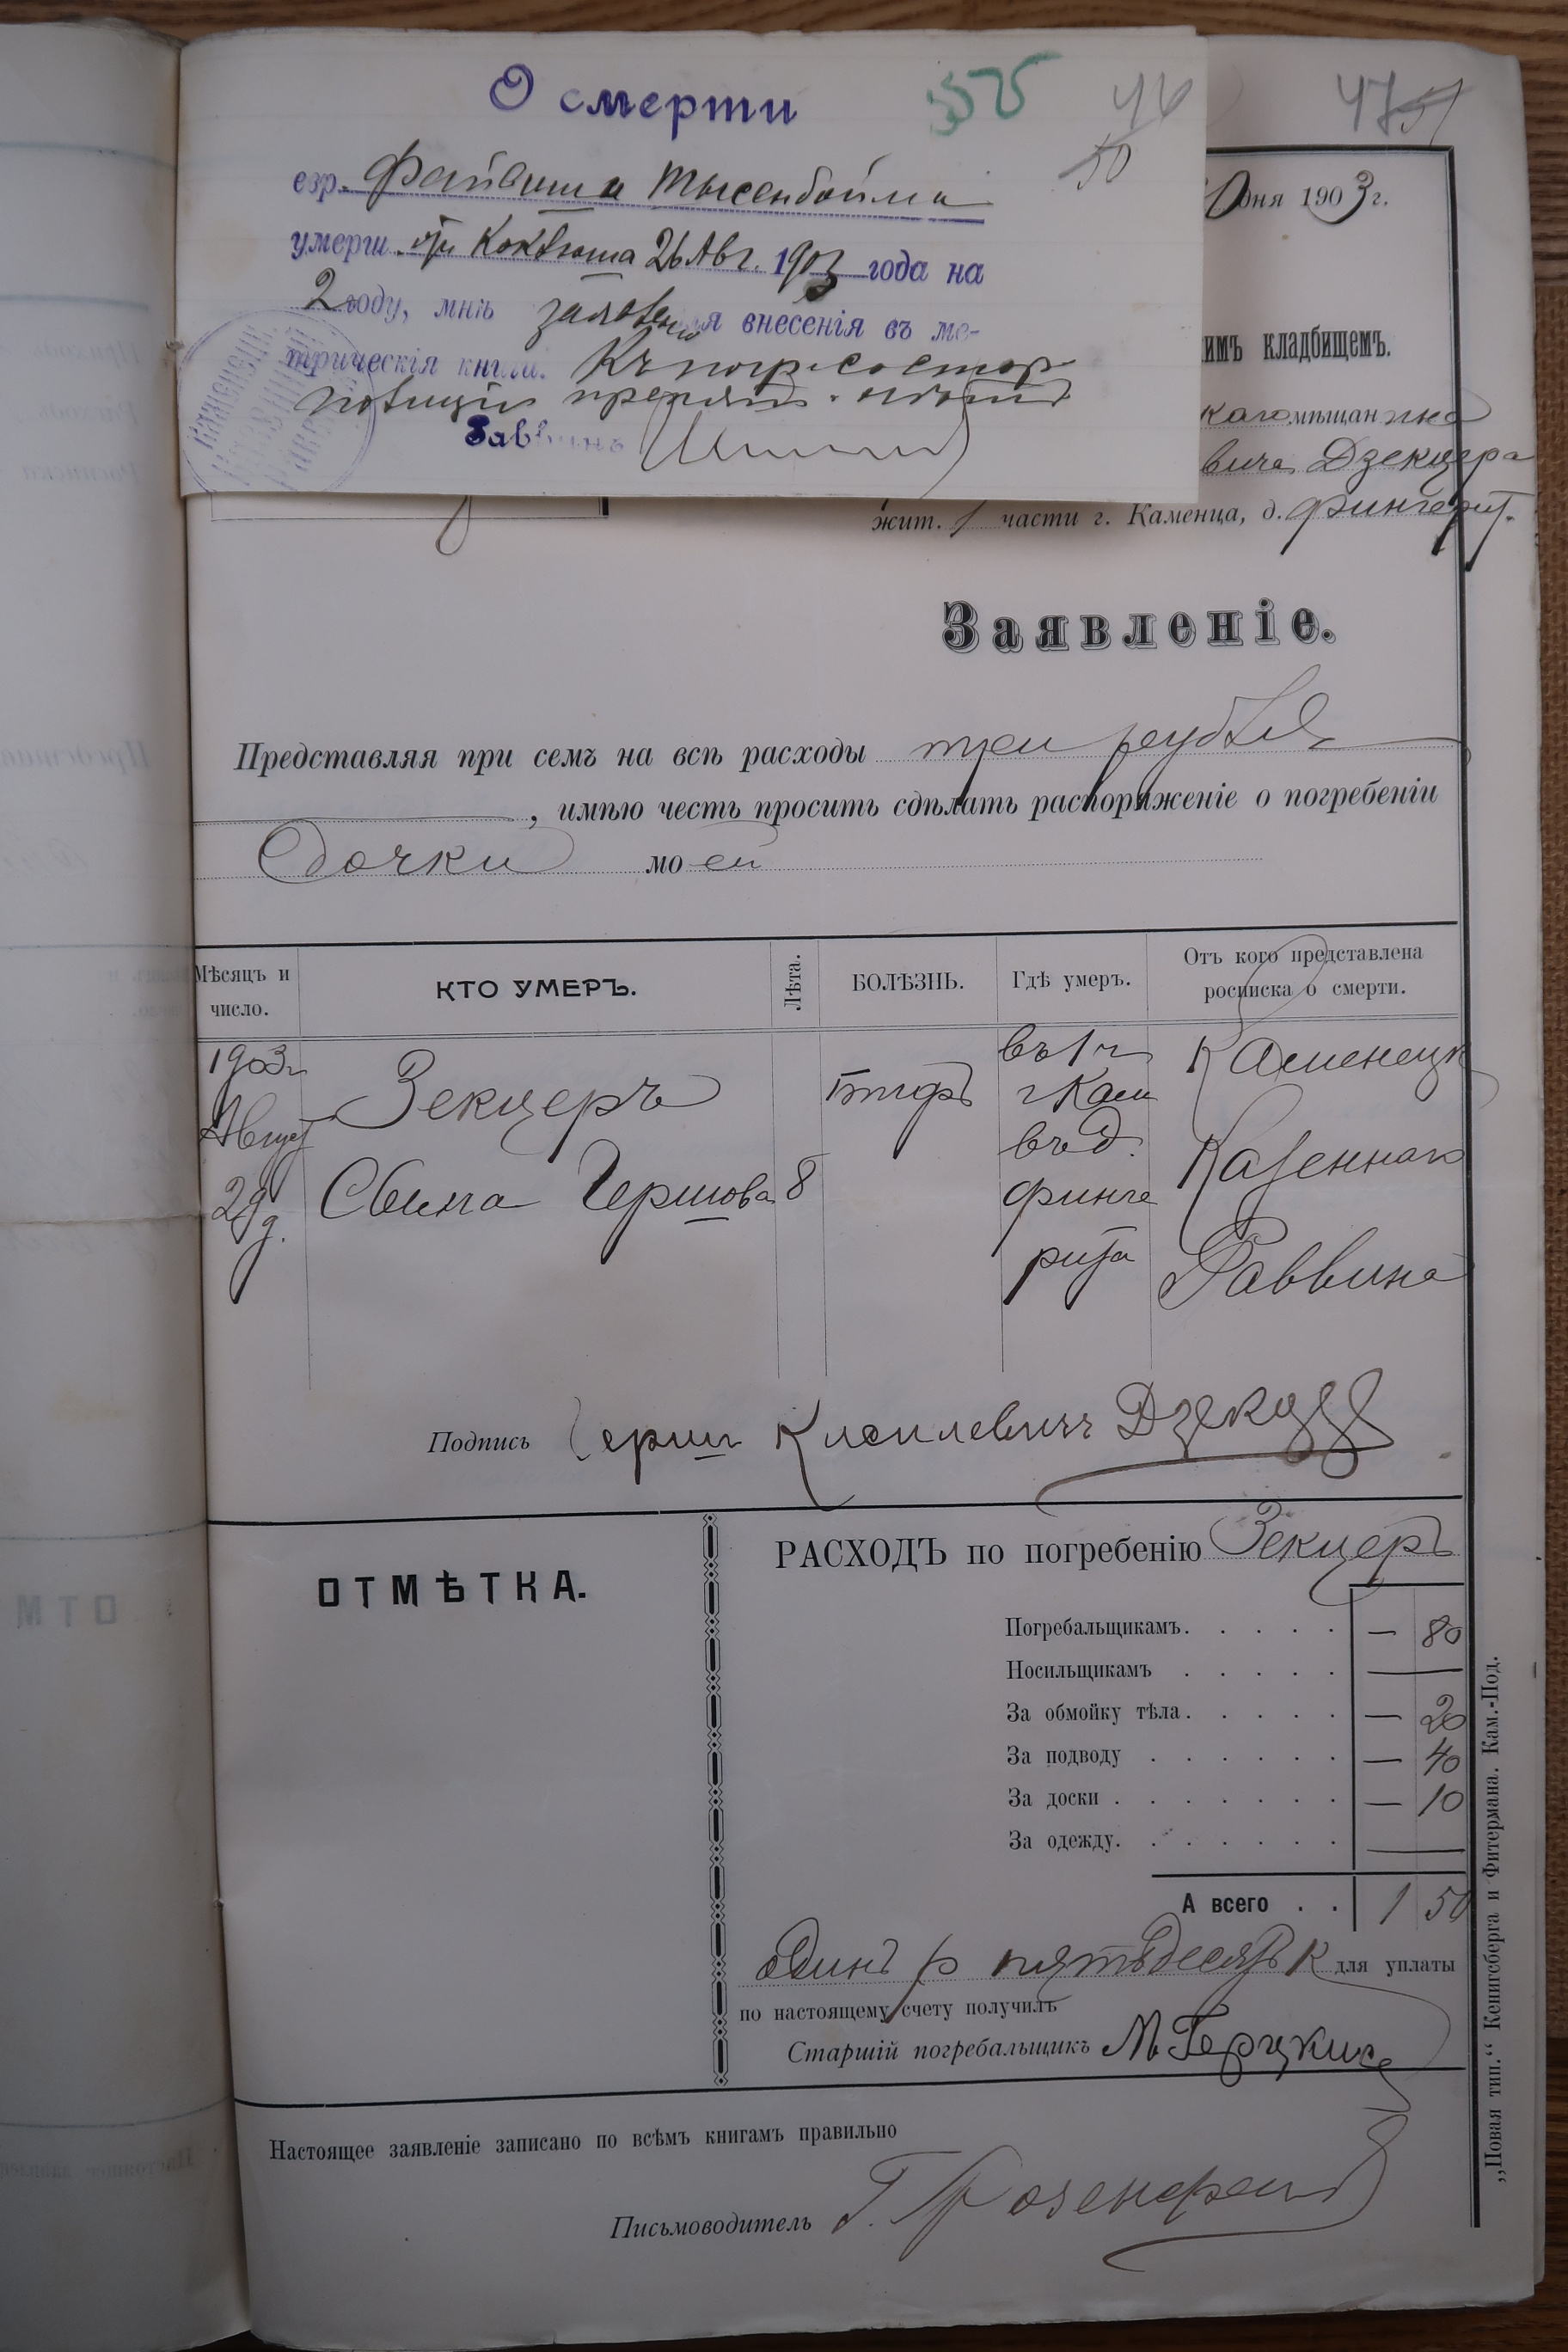 О смерти 355 46 50
47 51
евр. Файвиша Тысенбойма
умерш. отъ Коклюша 26 Авг. 1903 года на
2 году, мнѣ заявлено для внесенія въ ме-
трическія книги. Къ погр. со стор.
полиціи препят.
Раввинъ
дня 1903 г.
имъ кладбищемъ.
каго мѣщанина
вича Дзекцера
жит. 1 части г. Каменца, д. Фингерит.
Заявленіе.
Представляя при семъ на всѣ расходы три рубля
, имѣю честь просить сдѣлать распоряженіе о погребеніи
дочки моей
Мѣсяцъ и число. КТО УМЕРЪ. Лѣта. БОЛѢЗНЬ. Гдѣ умеръ. Отъ кого представлена росписка о смерти.
1903 г въ 1 ч Каменецк
Зекцеръ тифъ г Кам
Август въ д. Казеннаго
29 д. Сима Гершова 8 Финге
рита Раввина
Подпись Герш Кисилевичъ Дзекцер
ОТМѢТКА.
РАСХОДЪ по погребенію Зекцеръ
Погребальщикамъ. — 80
Носильщикамъ —
За обмойку тѣла. — 20
За подводу — 40
За доски — 10
За одежду. —
А всего 1 50
одинъ р пятьдесятъ к для уплаты
по настоящему счету получилъ
Старшій погребальщикъ М Герцкис
Настоящее заявленіе записано по всѣмъ книгамъ правильно
Письмоводитель Г. Розенфельд
„Новая тип.“ Кенигсберга и Фитермана. Кам.-Под.